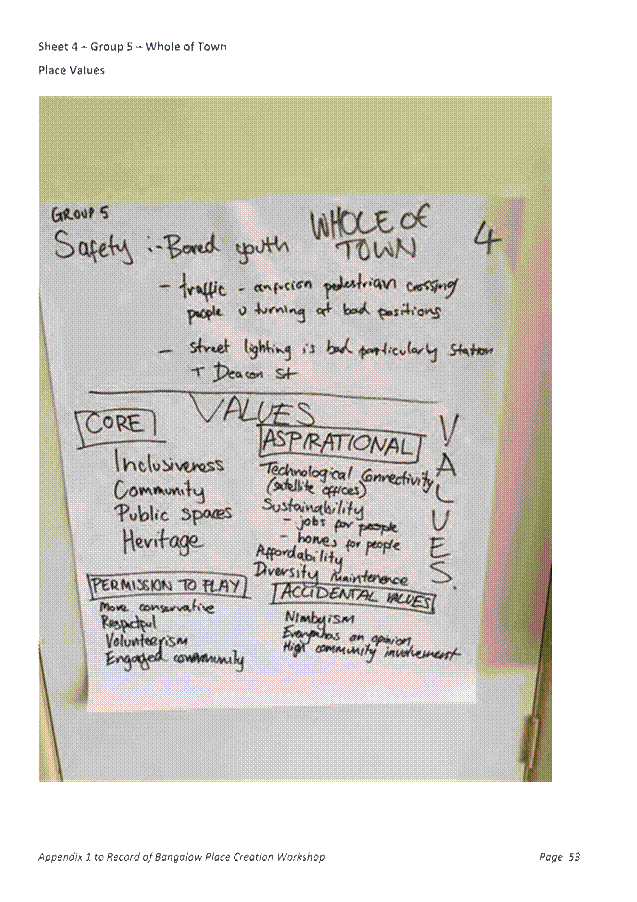 Sheet 4 – Group 5 – Whole of Town
Place Values
GROUP 5
WHOLE OF
TOWN
4
Safety :- Bored youth
- traffic - confusion pedestrian crossing
people U turning at bad positions
- street lighting is bad particularly Station
+ Deacon St
VALUES
VALUES.
CORE
Inclusiveness
Community
Public spaces
Heritage
ASPIRATIONAL
Technological Connectivity
(satellite offices)
Sustainability
- jobs for people
- homes for people
Affordability
Diversity maintenence
PERMISSION TO PLAY
More conservative
Respectful
Volunteerism
Engaged community
ACCIDENTAL VALUES
Nimbyism
Everyone has an opinion
High community involvement
Appendix 1 to Record of Bangalow Place Creation Workshop
Page 53